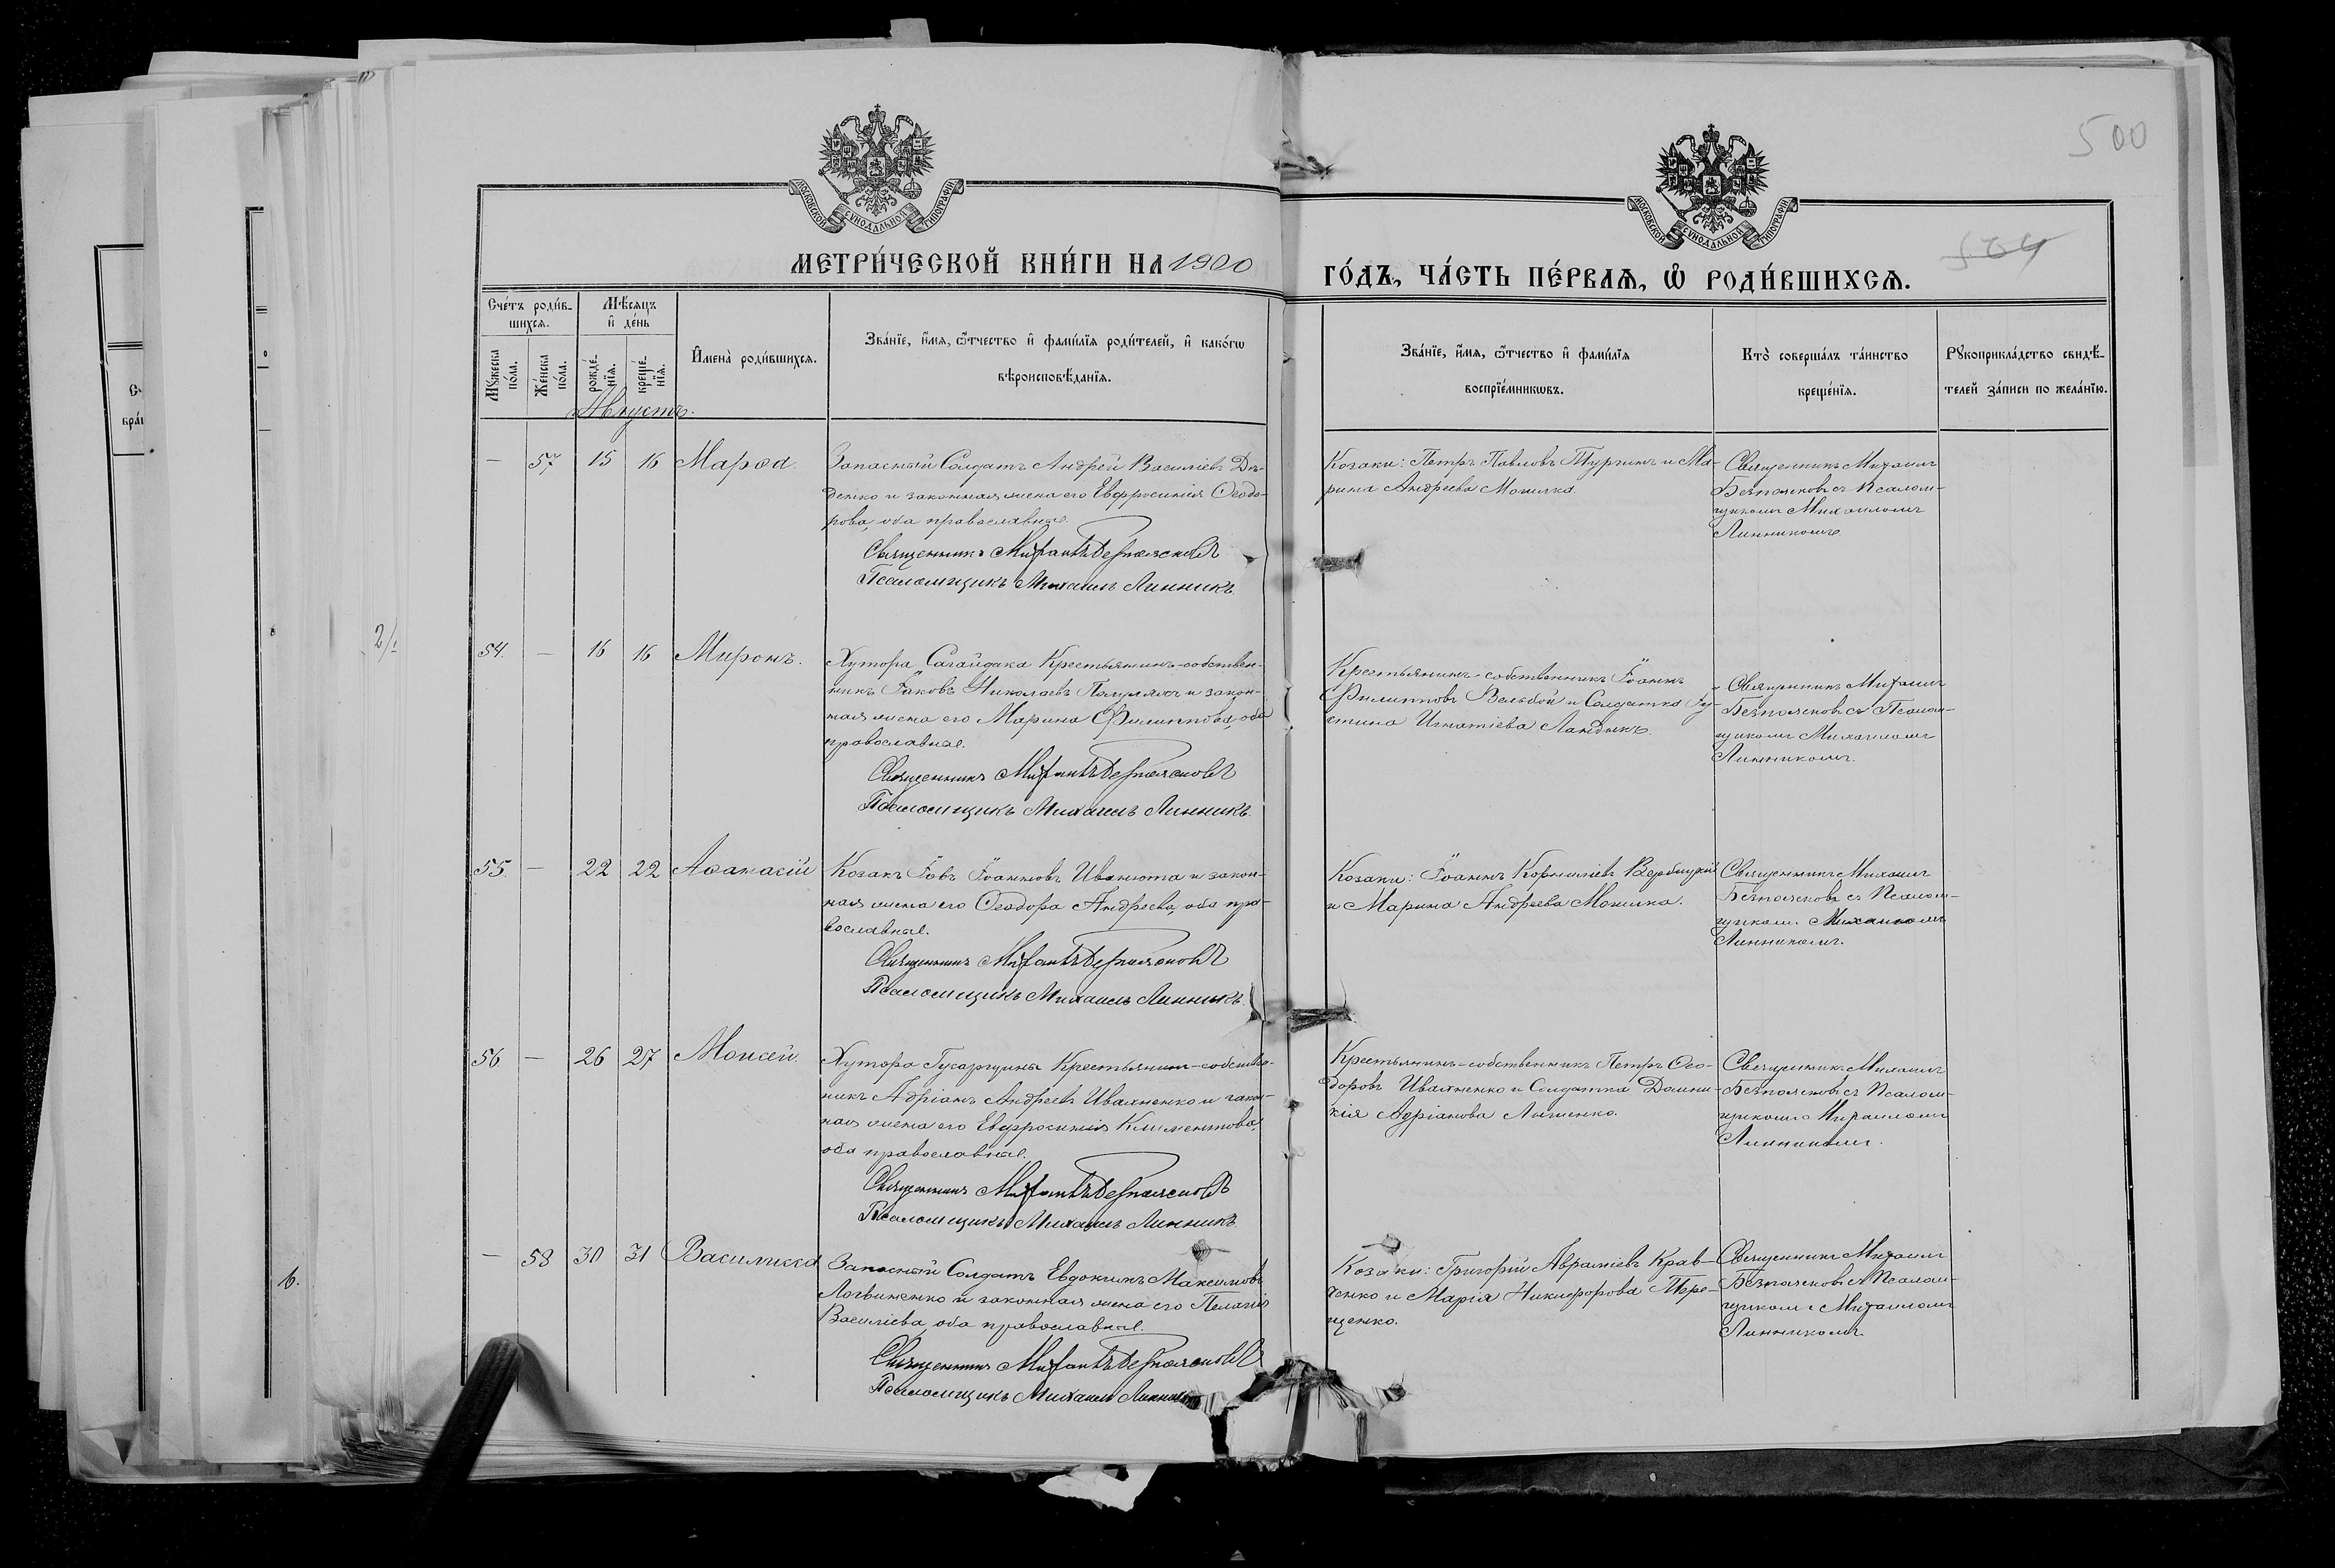 500
МОСКОВСКОЙ СУНОДАЛЬНОЙ ТИПОГРАФІИ
МОСКОВСКОЙ СУНОДАЛЬНОЙ ТИПОГРАФІИ
МЕТРИ́ЧЕСКОЙ КНИ́ГИ НА 1900
ГО́ДЪ, ЧА́СТЬ ПЕ́РВАѦ, Ѡ҆ РОДИ́ВШИХСѦ.
Сче́тъ роди́в-
шихсѧ.
Мꙋ́жеска по́ла.
Же́нска по́ла.
Мѣ́сѧцъ
и҆ де́нь
рожде́-
нїѧ.
креще́-
нїѧ.
Августъ.
И҆мена̀ роди́вшихсѧ.
Зва́нїе, и҆́мѧ, ѻ҆́тчество и҆ фами́лїѧ роди́телей, и҆ како́гѡ
вѣроисповѣ́данїѧ.
Зва́нїе, и҆́мѧ, ѻ҆́тчество и҆ фами́лїѧ
воспрїе́мникѡвъ.
Кто̀ соверша́лъ та́инство
креще́нїѧ.
Рꙋкоприкла́дство свидѣ́-
телей за́писи по жела́нїю.
— 57 15 16 Марѳа.
Запасный Солдатъ Андрей Василіевъ
денко и законная жена его Евфросинія Ѳеодо-
рова, оба православные.
Священникъ Михаилъ Безпоясковъ
Псаломщикъ Михаилъ Линникъ.
Козаки: Петръ Павловъ Турчинъ и Ма-
рина Андреева Момилка.
Священникъ Михаилъ
Безпоясковъ съ Псалом-
щикомъ Михаиломъ
Линникомъ.
54. — 16 16 Миронъ.
Хутора Сагайдака Крестьянинъ-собствен-
никъ Іаковъ Николаевъ и закон-
ная жена его Марина Филиппова, оба
православные.
Священникъ Михаилъ Безпоясковъ
Псаломщикъ Михаилъ Линникъ.
Крестьянинъ-собственникъ Іоаннъ
Филипповъ Вельбой и Солдатка Іу-
стина Игнатіева Ландыкъ.
Священникъ Михаилъ
Безпоясковъ съ Псалом-
щикомъ Михаиломъ
Линникомъ.
55. — 22 22 Аѳанасій
Козакъ Іовъ Іоанновъ Иванюта и закон-
ная жена его Ѳеодора Андреева, оба пра-
вославные.
Священникъ Михаилъ Безпоясковъ
Псаломщикъ Михаилъ Линникъ.
Козаки: Іоаннъ Корниліевъ Вербицкій
и Марина Андреева Момилка.
Священникъ Михаилъ
Безпоясковъ съ Псалом-
щикомъ Михаиломъ
Линникомъ.
56. — 26 27 Моисей.
Хутора Крестьянинъ-собствен-
никъ Адріанъ Андреевъ Иваxненко и закон-
ная жена его Евфросинія Климентова,
оба православные.
Священникъ Михаилъ Безпоясковъ
Псаломщикъ Михаилъ Линникъ.
Крестьянинъ-собственникъ Петръ Ѳео-
доровъ Ивахненко и Солдатка Домни-
кія Адріанова Ляшенко.
Священникъ Михаилъ
Безпоясковъ съ Псалом-
щикомъ Михаиломъ
Линникомъ.
— 58 30 31 Василисса
Запасный Солдатъ Евдокимъ Максимовъ
Логвиненко и законная жена его Пелагія
Василіева, оба православные.
Священникъ Михаилъ Безпоясковъ
Псаломщикъ Михаилъ Линникъ
Козаки: Григорій Авраміевъ Крав-
ченко и Марія Никифорова Тере-
щенко.
Священникъ Михаилъ
Безпоясковъ съ Псалом-
щикомъ Михаиломъ
Линникомъ.